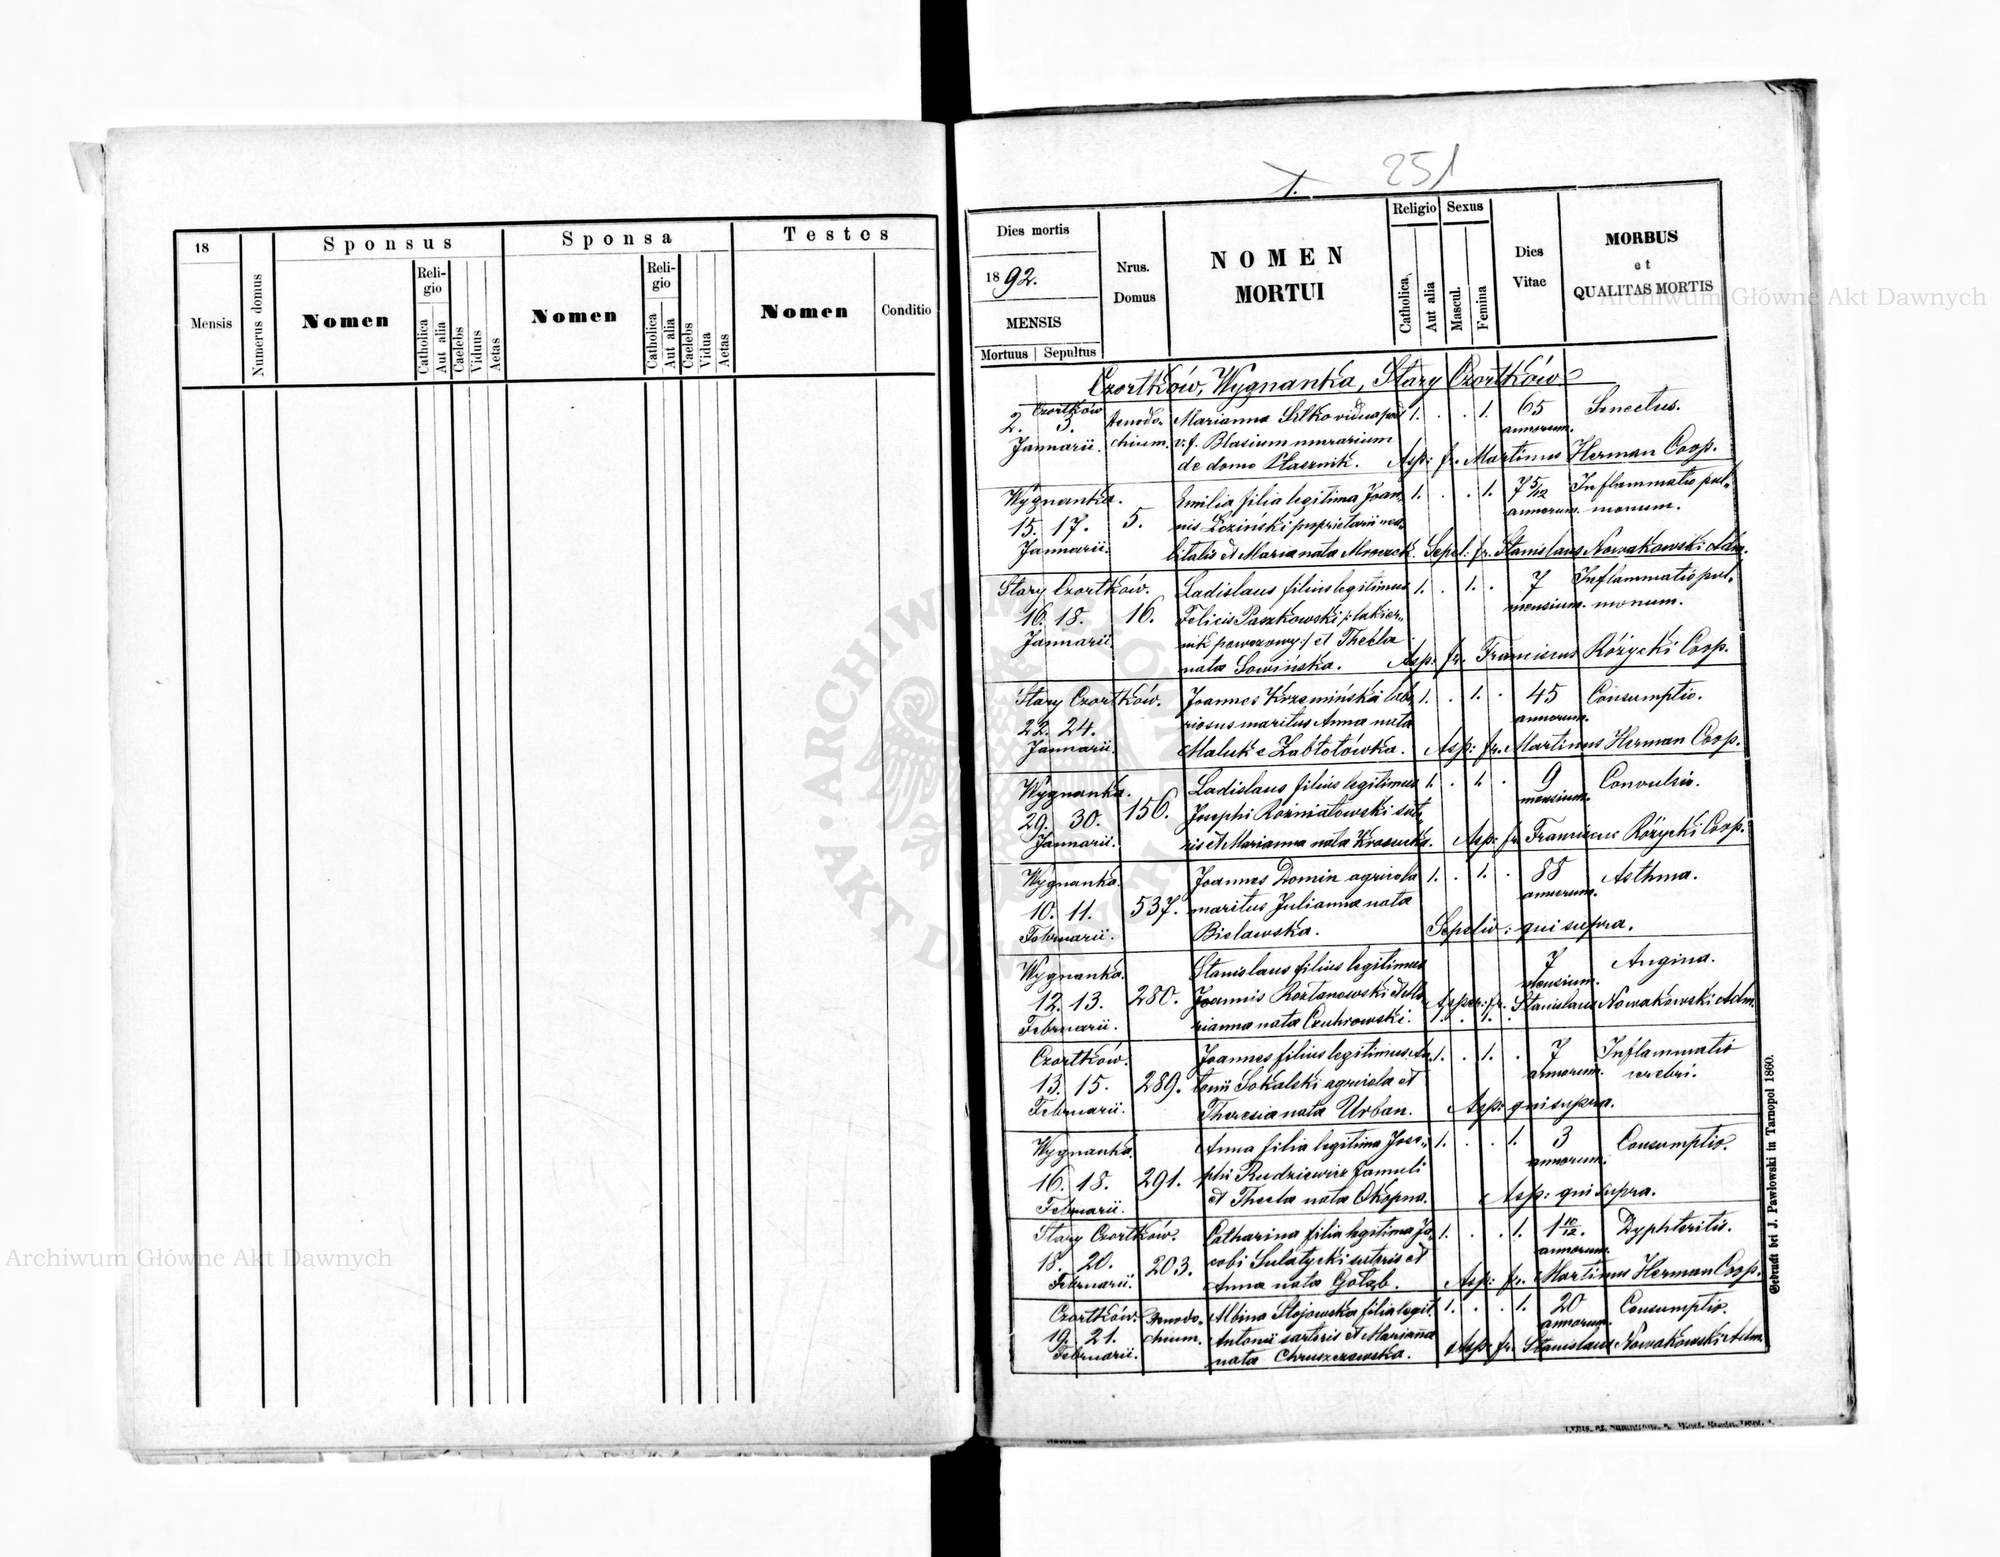 18
Mensis
Numerus domus
Sponsus
Nomen
Reli-
gio
Catholica
Aut alia
Caelebs
Viduus
Aetas
Sponsa
Nomen
Reli-
gio
Catholica
Aut alia
Caelebs
Vidua
Aetas
Testes
Nomen
Conditio
1.
251
Dies mortis
1892.
MENSIS
Mortuus | Sepultus
Nrus.
Domus
NOMEN
MORTUI
Religio
Catholica
Aut alia
Sexus
Mascul.
Femina
Dies
Vitae
MORBUS
et
QUALITAS MORTIS
Czortków, Wygnanka, Stary Czortków
Czortków
2. 3. Xenodo- Marianna vidua post 1. . . 1. 65 Senectus.
Januarii. chium. v. f. Blasium murarium annorum.
de domo Ptasznik. Asp: fr. Martinus Herman Coop.
Wygnanka. Emilia filia legitima Joan- 1. . . 1. 7 5/12 Inflammatio pul-
15. 17. 5. nis Łoziński proprietarii annorum. monum.
Januarii. et Maria nata Mroczek. Sepel: fr. Stanislaus Nowakowski Adm.
Stary Czortków. Ladislaus filius legitimus 1. . 1. . 7 Inflammatio pul-
16. 18. 16. Felicis Paszkowski /:lakier- mensium. monum.
Januarii. nik powozowy:/ et Thecla
nata Sowińska. Asp: fr. Franciscus Różycki Coop.
Stary Czortków. Joannes Krzemiński 1. . 1. . 45 Consumptio.
22. 24. maritus Anna nata annorum.
Januarii. Maluk e Zabłotówka. Asp: fr. Martinus Herman Coop.
Wygnanka. Ladislaus filius legitimus 1. . 1. . 9 Convulsio.
29. 30. 156. Josephi Rozmiatowski suto- mensium.
Januarii. ris et Marianna nata Asp: fr. Franciscus Różycki Coop.
Wygnanka. Joannes Domin agricola 1. . 1. . 88 Asthma.
10. 11. 537. maritus Julianna nata annorum.
Februarii. Bielawska. Sepeliv: qui supra.
Wygnanka. Stanislaus filius legitimus 7 Angina.
12. 13. 280. Joannis Roztanowski et Ma- mensium.
Februarii. rianna nata Czubrowski. Asper: fr. Stanislaus Nowakowski Adm.
1. . 1. .
Czortków. Joannes filius legitimus An- 1. . 1. . 7 Inflammatio
13. 15. 289. tonii Sokalski agricola et annorum. cerebri.
Februarii. Theresia nata Urban. Asp: qui supra.
Wygnanka. Anna filia legitima Jose- 1. . . 1. 3 Consumptio.
16. 18. 291. phi Rudziewicz famuli annorum.
Februarii. et Thecla nata Okopna. Asp: qui supra.
Stary Czortków. Catharina filia legitima Ja- 1. . . 1. 1 10/12. Dyphteritis.
18. 20. 203. cobi Sulatycki sutoris et annorum.
Februarii. Anna nata Gołąb. Asp: fr. Martinus Herman Coop.
Czortków. Xenodo- Albina Stojowska filia legit. 1. . . 1. 20 Consumptio.
19. 21. chium. Antonii sartoris et Marianna annorum.
Februarii. nata Chruszczewska. Asp: fr. Stanislaus Nowakowski Adm.
Gedruckt bei J. Pawłowski in Tarnopol 1860.
Archiwum Główne Akt Dawnych
Archiwum Główne Akt Dawnych
ARCHIWUM GŁÓWNE AKT DAWNYCH